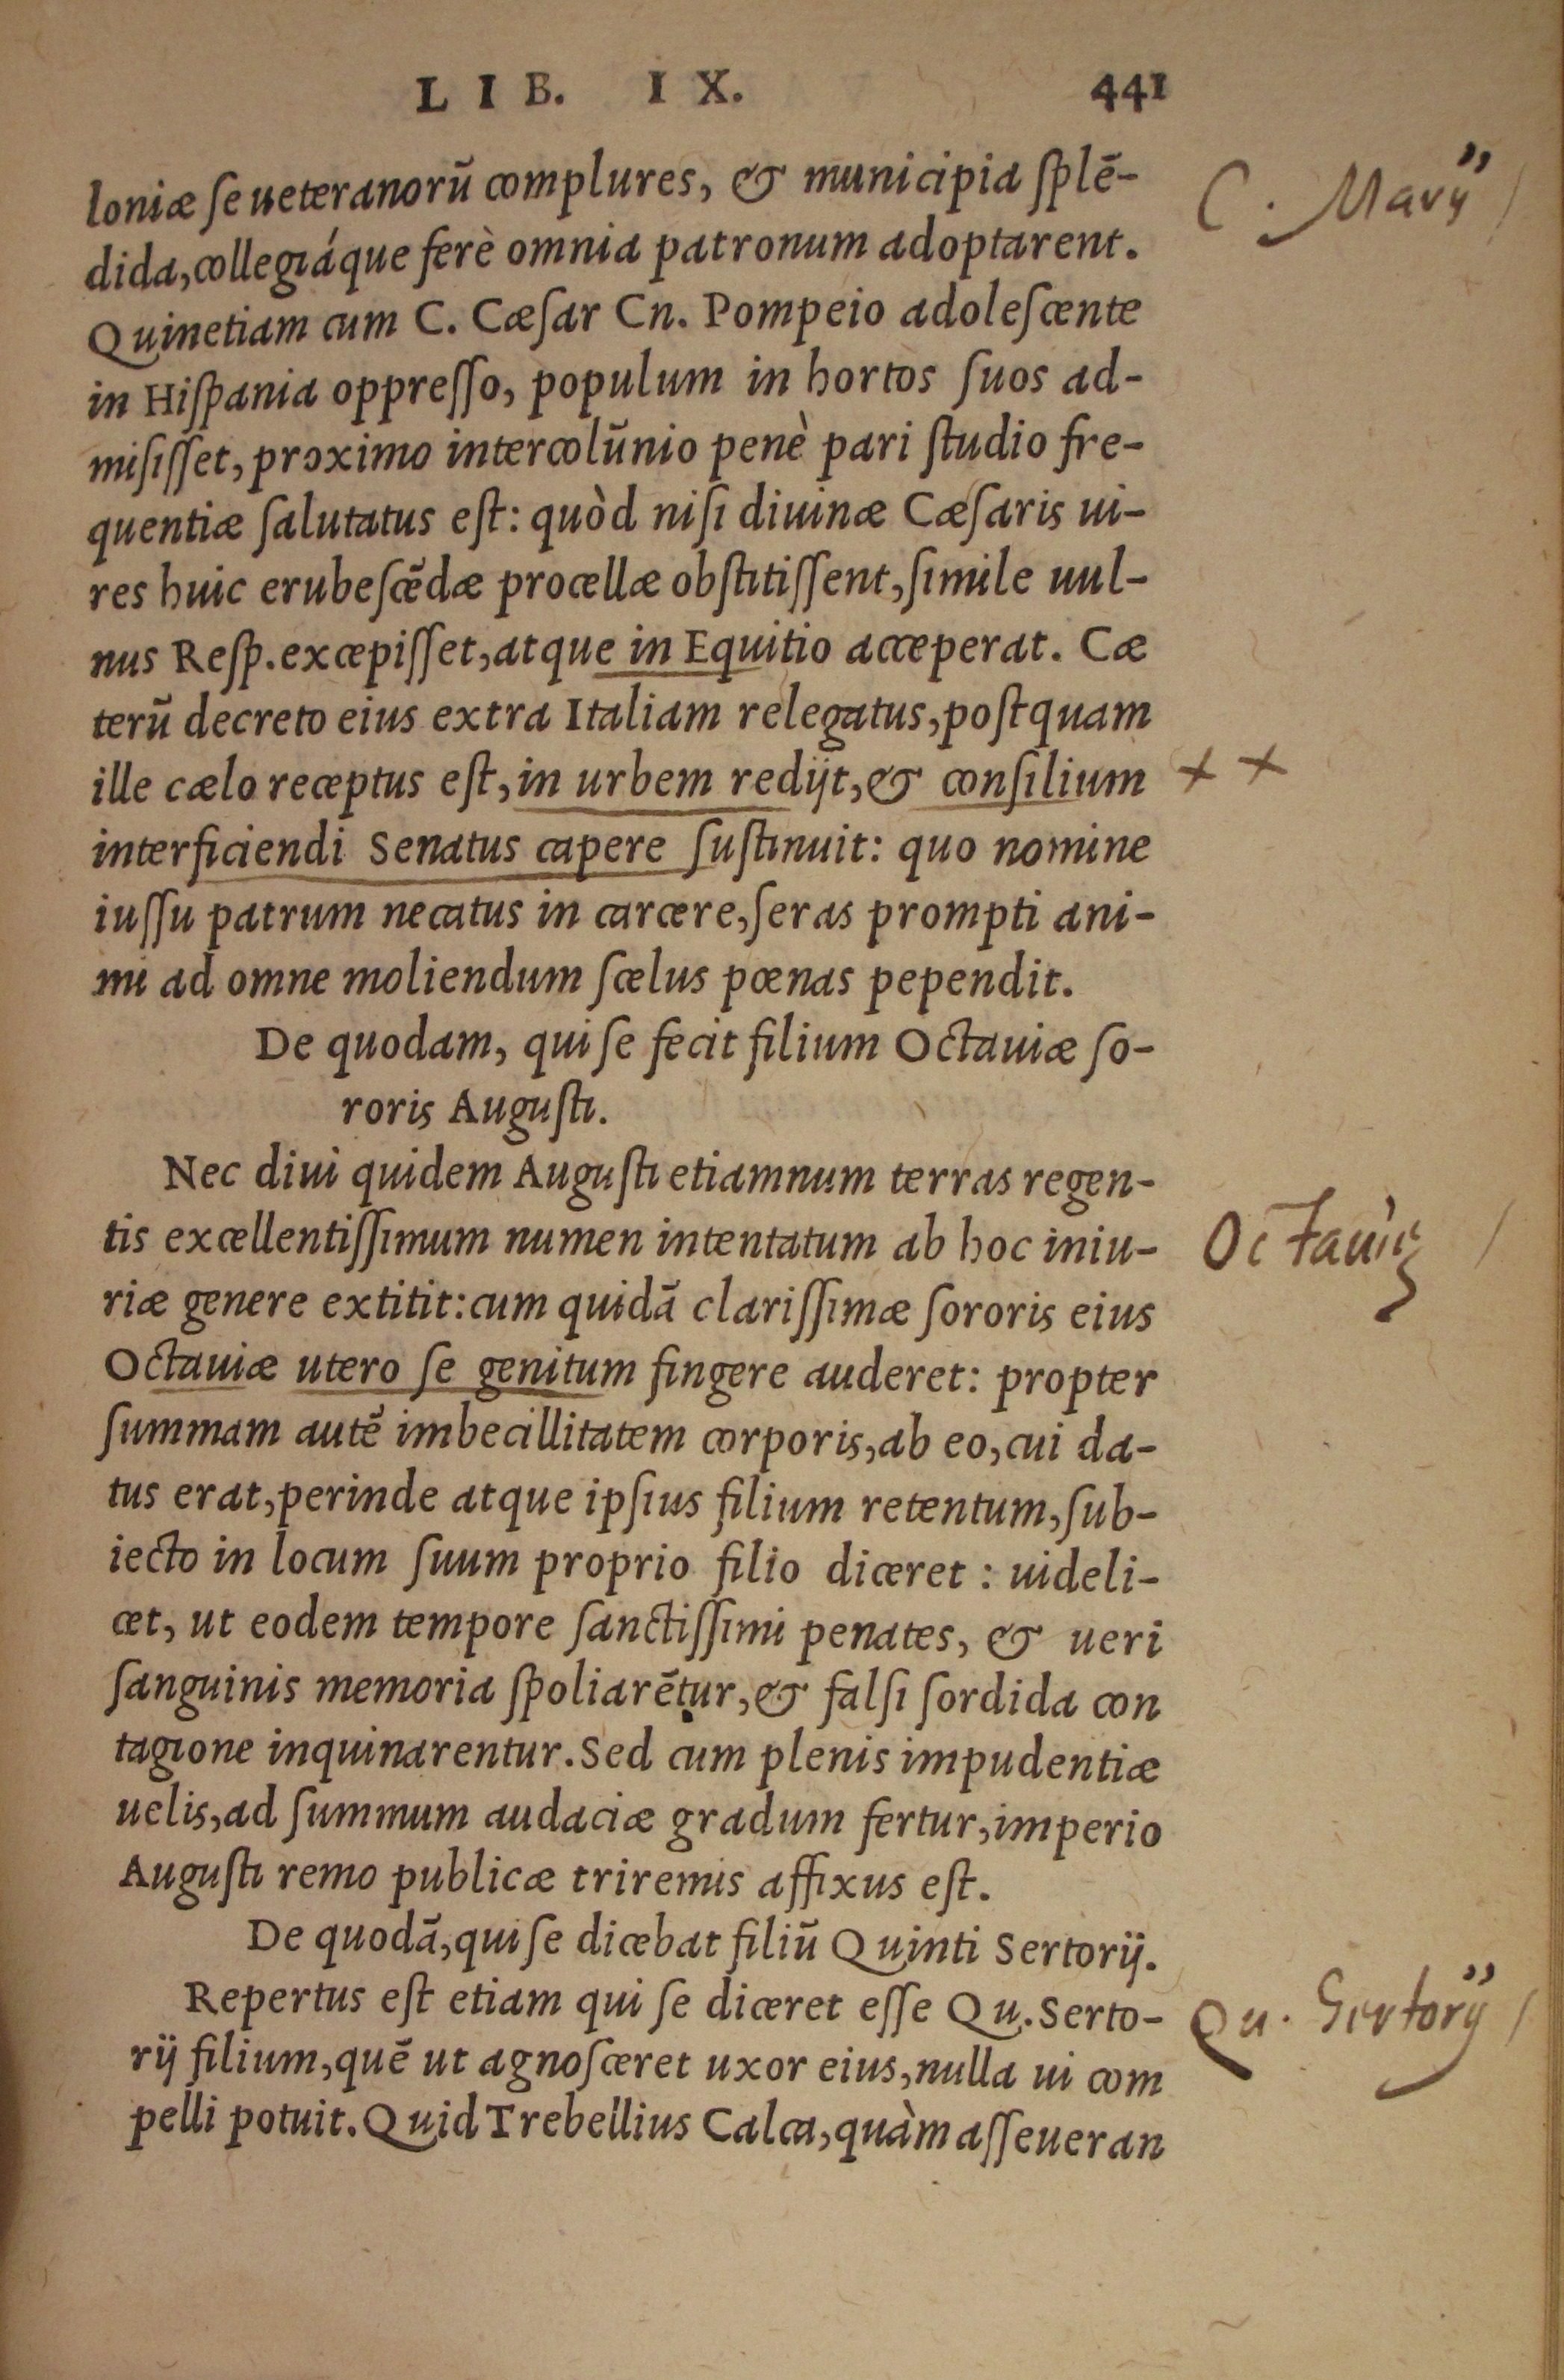 LIB. IX. 441
loniæ ſe ueteranorū complures, & municipia ſplē-
C. Marij
dida, collegiáque ferè omnia patronum adoptarent.
Quinetiam cum C. Cæſar Cn. Pompeio adoleſcente
in Hiſpania oppreſſo, populum in hortos ſuos ad-
miſiſſet, proximo intercolūnio penè pari ſtudio fre-
quentiæ ſalutatus eſt: quòd niſi diuinæ Cæſaris ui-
res huic erubeſcēdæ procellæ obſtitiſſent, ſimile uul-
nus Reſp. excepiſſet, atque in Equitio acceperat. Cæ
terū decreto eius extra Italiam relegatus, poſtquam
ille cælo receptus eſt, in urbem redijt, & conſilium
+ +
interficiendi Senatus capere ſuſtinuit: quo nomine
iuſſu patrum necatus in carcere, ſeras prompti ani-
mi ad omne moliendum ſcelus pœnas pependit.
De quodam, qui ſe fecit filium Octauiæ ſo-
roris Auguſti.
Nec diui quidem Auguſti etiamnum terras regen-
tis excellentiſſimum numen intentatum ab hoc iniu-
riæ genere extitit: cum quidā clariſſimæ ſororis eius
Octauiæ utero ſe genitum fingere auderet: propter
ſummam autē imbecillitatem corporis, ab eo, cui da-
tus erat, perinde atque ipſius filium retentum, ſub-
iecto in locum ſuum proprio filio diceret: uideli-
cet, ut eodem tempore ſanctiſſimi penates, & ueri
ſanguinis memoria ſpoliarētur, & falſi ſordida con
tagione inquinarentur. Sed cum plenis impudentiæ
uelis, ad ſummum audaciæ gradum fertur, imperio
Auguſti remo publicæ triremis affixus eſt.
De quodā, qui ſe dicebat filiū Quinti Sertorij.
Repertus eſt etiam qui ſe diceret eſſe Qu. Serto-
Qu. Sertorij
rij filium, quē ut agnoſceret uxor eius, nulla ui com
pelli potuit. Quid Trebellius Calca, quàm aſſeueran